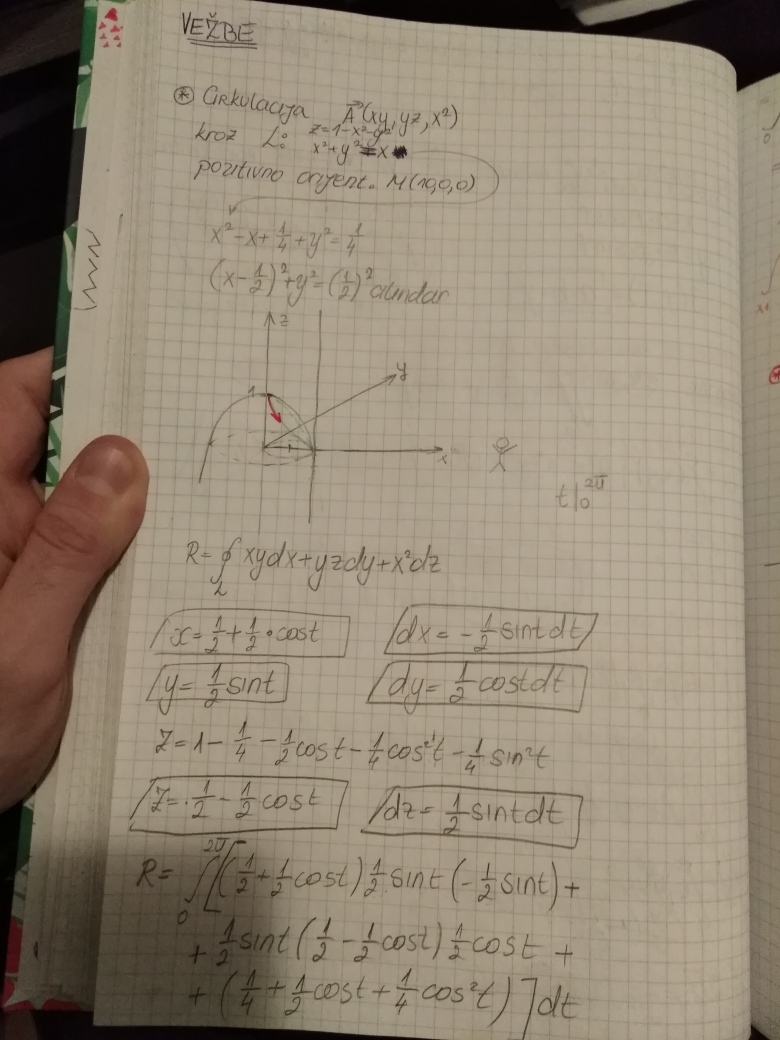 VEŽBE
⊛ Cirkulacija A⃗(xy, yz, x²)
kroz L: z=1-x²-y²
x²+y²=x
pozitivno orijent. M(10,0,0)
x²-x+1/4+y²=1/4
(x-1/2)²+y²=(1/2)² cilindar
z
y
1
x
t|₀^2π
R=∮_L xydx+yzdy+x²dz
x=1/2+1/2·cost dx=-1/2 sintdt
y=1/2 sint dy=1/2 costdt
Z=1-1/4-1/2cost-1/4cos²t-1/4sin²t
Z=1/2-1/2cost dz=1/2 sintdt
R=∫₀^2π[(1/2+1/2cost)1/2sint(-1/2sint)+
+1/2sint(1/2-1/2cost)1/2cost+
+(1/4+1/2cost+1/4cos²t)]dt